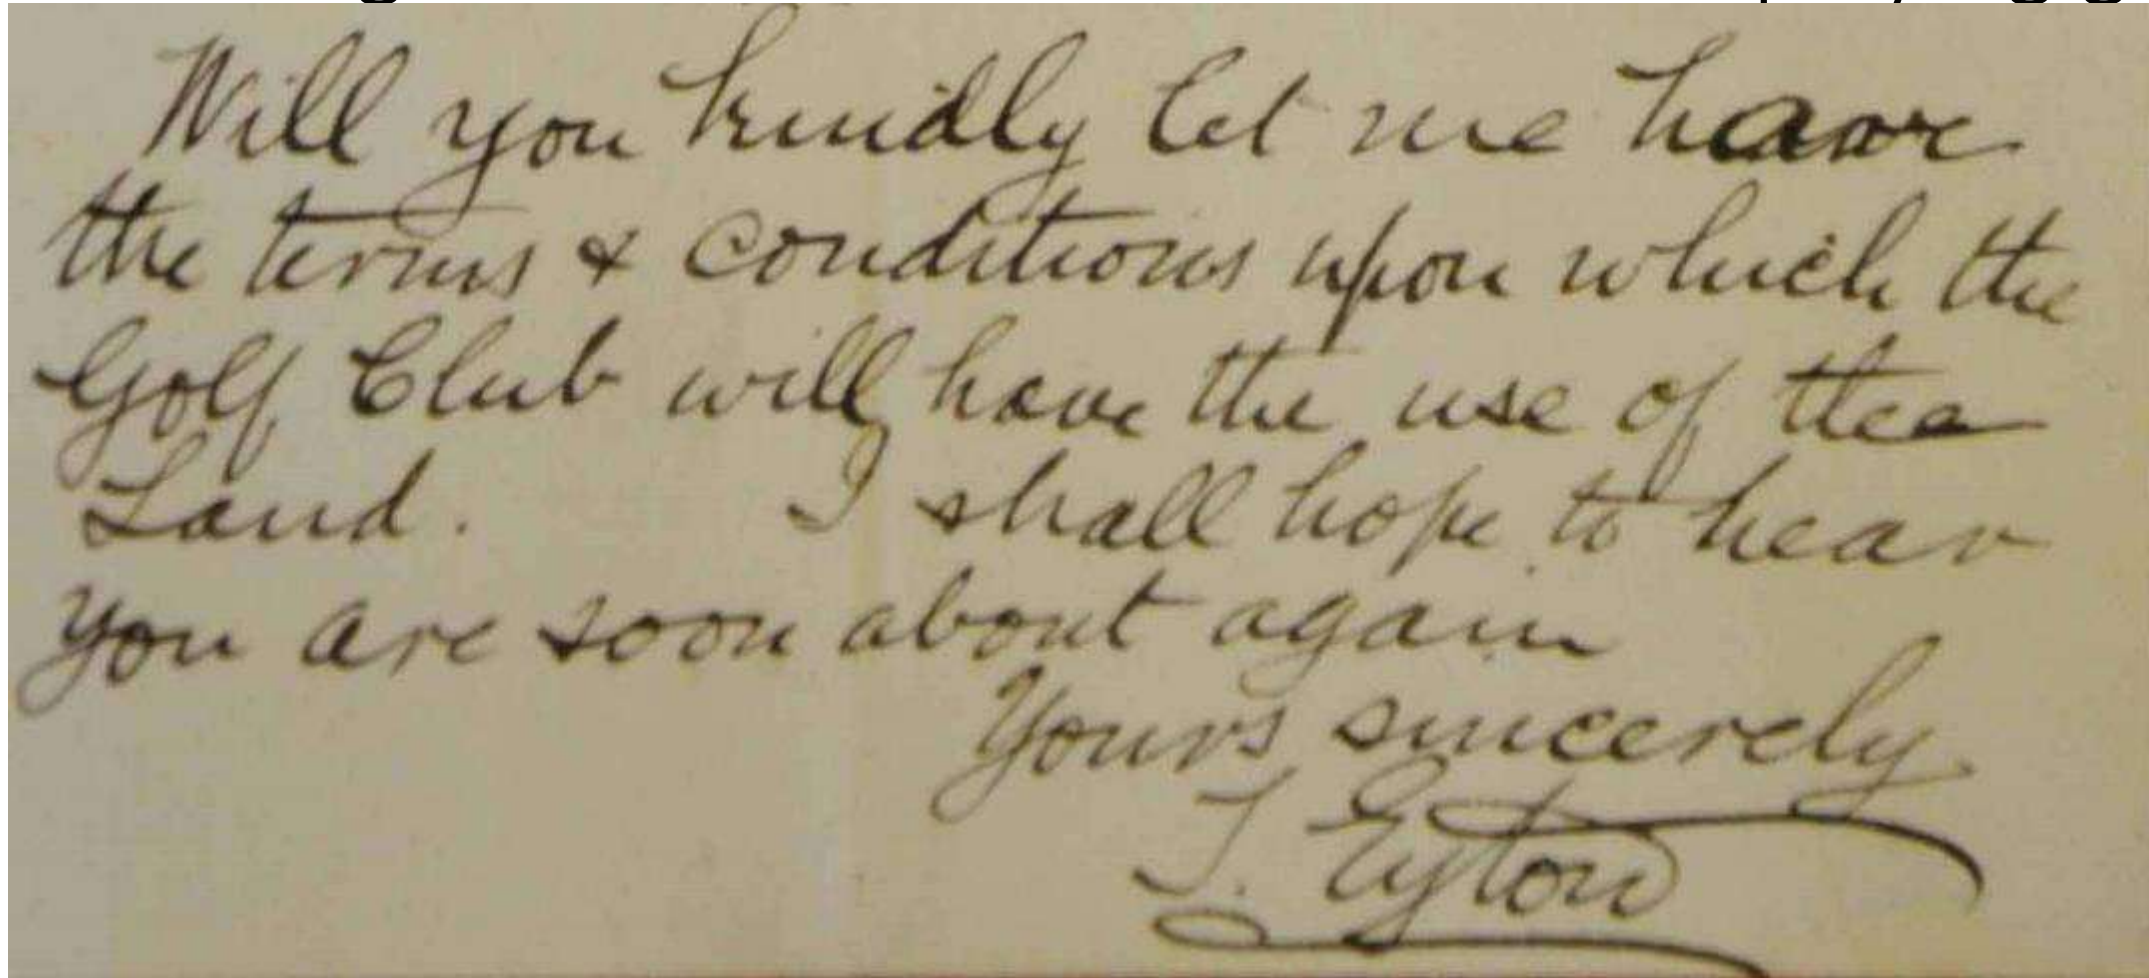 Will you kindly let me have
the terms & conditions upon which the
Golf Club will have the use of the
Land. I shall hope to hear
you are soon about again
Yours sincerely
T. Eyton